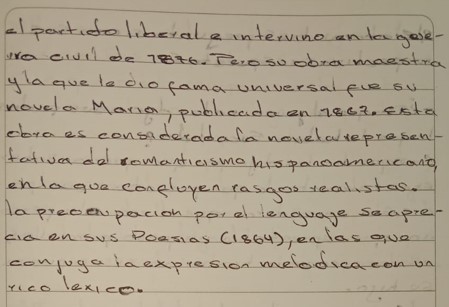 el partido liberal e intervino en la gue-
rra civil de 1876. Pero su obra maestra
y la que le dio fama universal fue su
novela Maria, publicada en 1867. Esta
obra es considerada la novela represen-
tativa del romanticismo hispanoamericano,
en la que confluyen rasgos realistas.
la preocupacion por el lenguaje se apre-
cia en sus Poesias (1864), en las que
conjuga la expresion melodica con un
rico lexico.